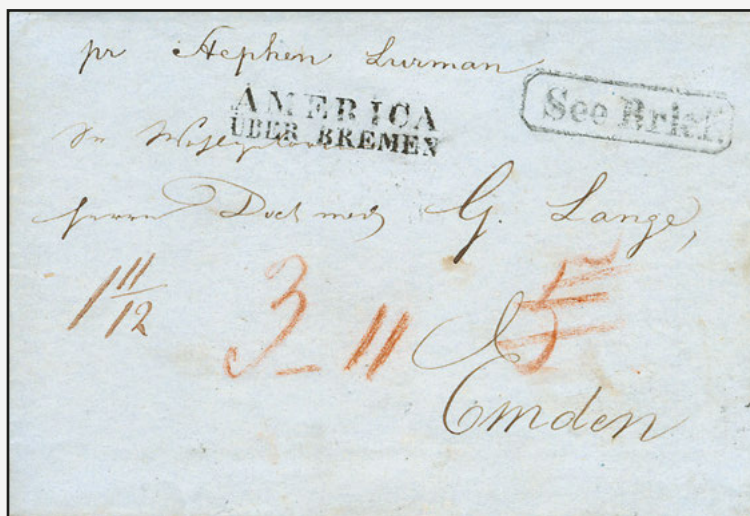 pr Stephen Lurman
AMERICA
ÜBER BREMEN
See Brief.
Herrn Doct med G. Lange,
1 11/12
3_11 5
Emden